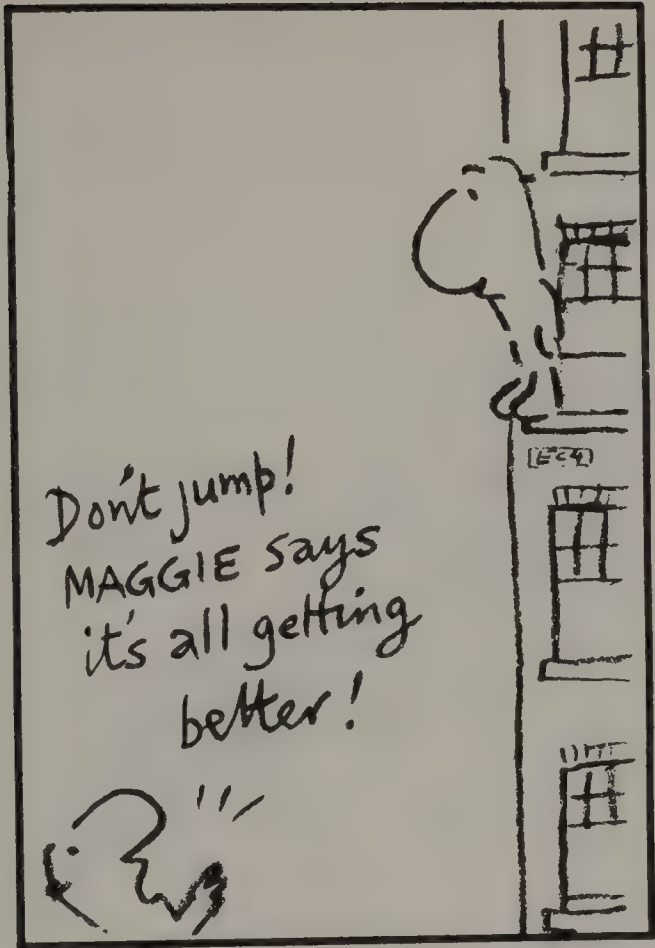 [EC4]
Don't jump!
MAGGIE says
it's all getting
better!